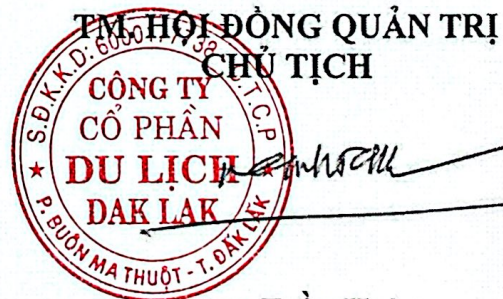 TM. HỘI ĐỒNG QUẢN TRỊ
CHỦ TỊCH
S.Đ.K.K.D: C.T.C.P
CÔNG TY
CỔ PHẦN
DU LỊCH
DAK LAK
P. BUÔN MA THUỘT - T. ĐẮK LẮK